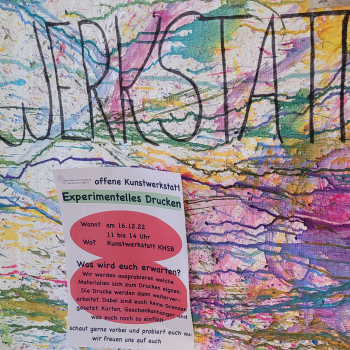 WERKSTATT
offene Kunstwerkstatt
Experimentelles Drucken
Wann? am 16.12.22
11 bis 14 Uhr
Wo? Kunstwerkstatt KHSB
Was wird euch erwarten?
Wir werden ausprobieren welche
Materialien sich zum Drucken eignen.
Die Drucke werden dann weiterver-
arbeitet. Dabei sind euch keine Grenzen
gesetzt. Karten, Geschenkanhänger und
was euch noch so einfällt
schaut gerne vorbei und probiert euch aus
wir freuen uns auf euch